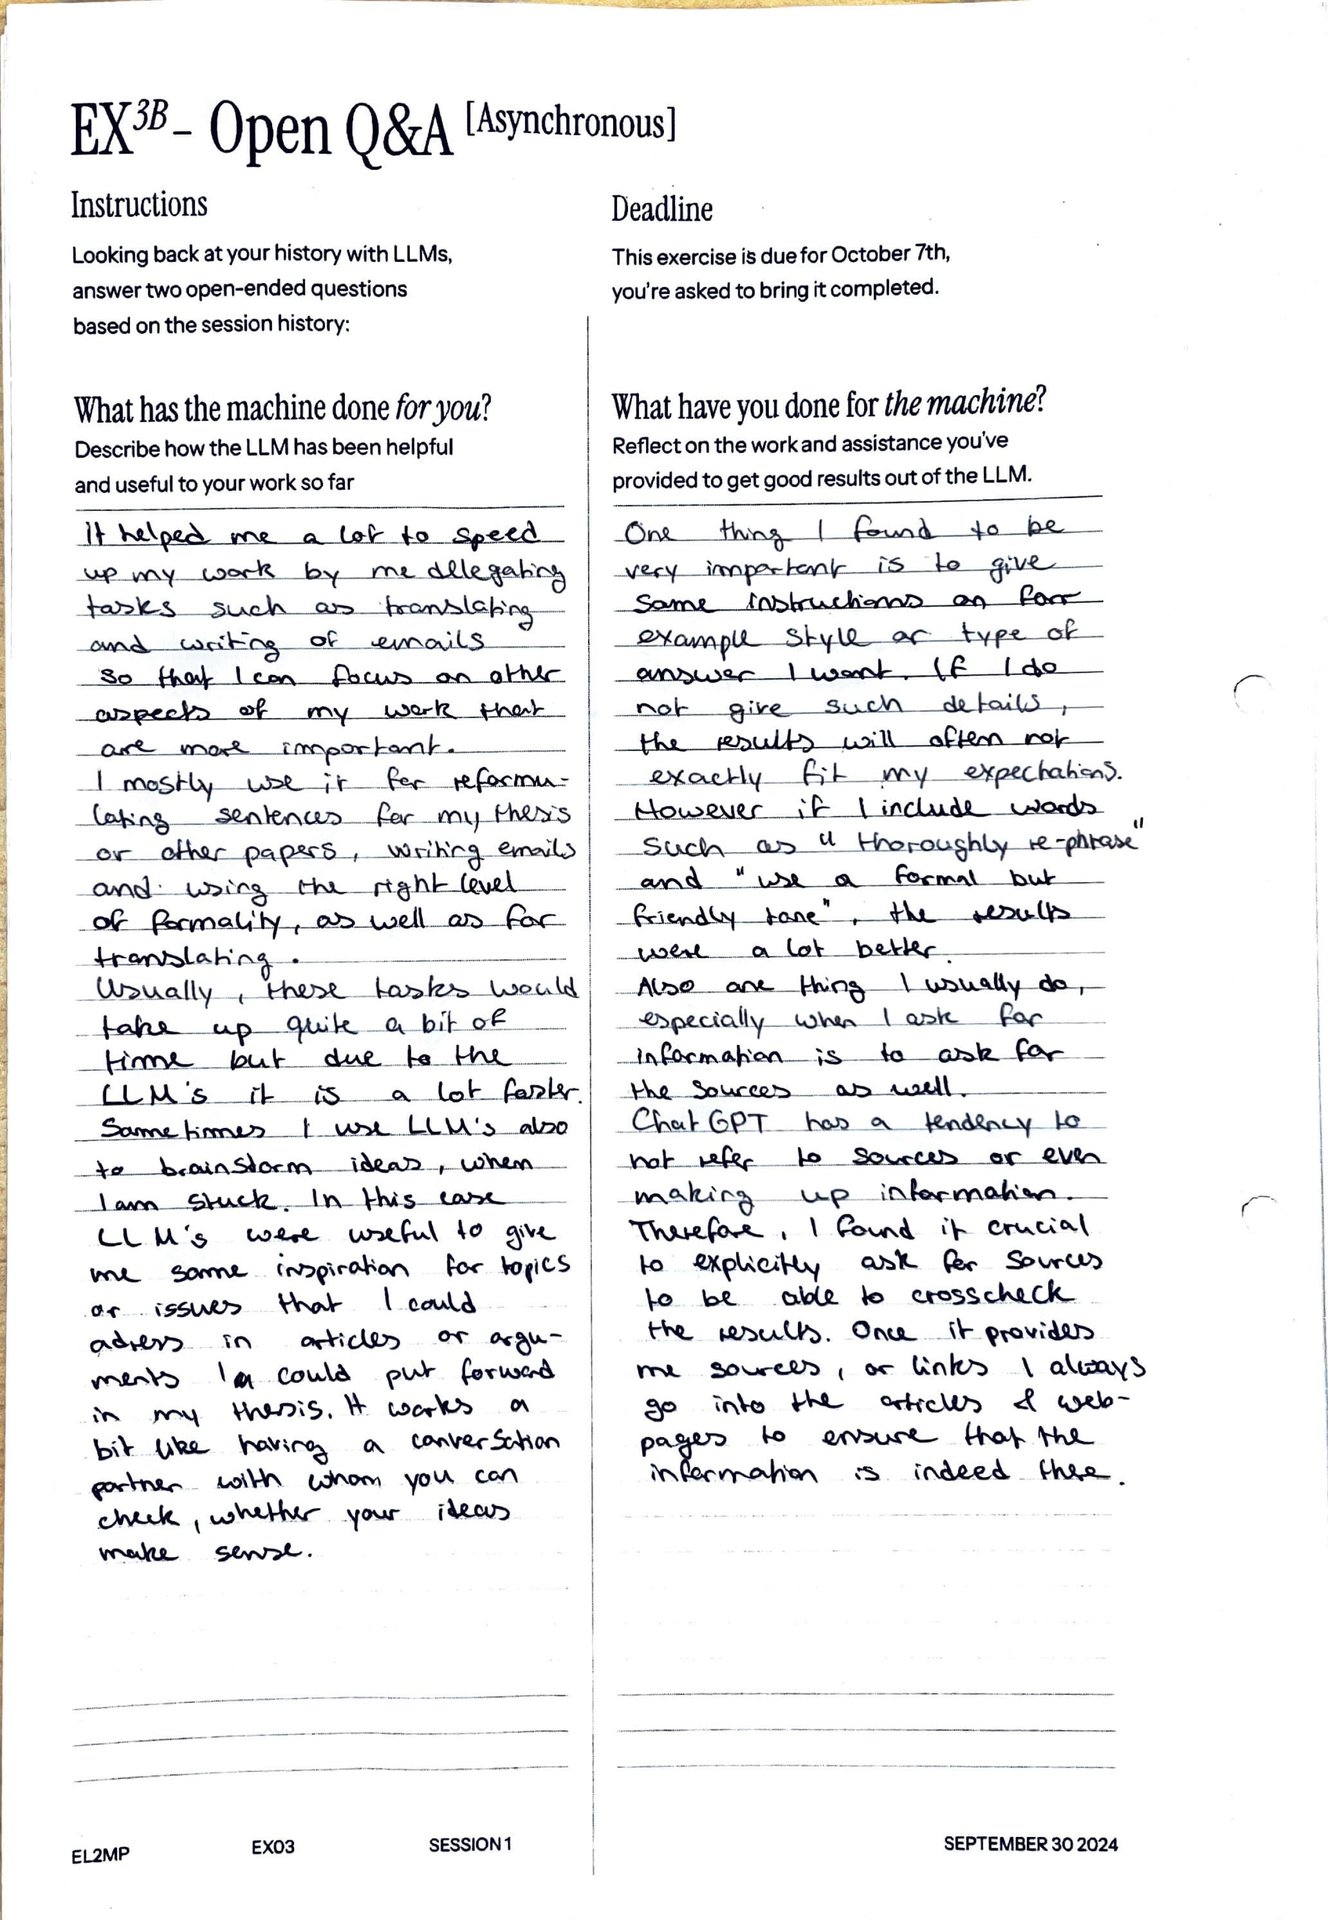 EX3B – Open Q&A [Asynchronous]
Instructions
Looking back at your history with LLMs,
answer two open-ended questions
based on the session history:
Deadline
This exercise is due for October 7th,
you're asked to bring it completed.
What has the machine done for you?
Describe how the LLM has been helpful
and useful to your work so far
It helped me a lot to speed
up my work by me dellegating
tasks such as translating
and writing of emails
so that I can focus on other
aspects of my work that
are more important.
I mostly use it for reformu-
lating sentences for my thesis
or other papers, writing emails
and using the right level
of formality, as well as for
translating.
Usually, these tasks would
take up quite a bit of
time but due to the
LLM's it is a lot faster.
Sometimes I use LLM's also
to brainstorm ideas, when
I am stuck. In this case
LLM's were useful to give
me some inspiration for topics
or issues that I could
adress in articles or argu-
ments I could put forward
in my thesis. It works a
bit like having a conversation
partner with whom you can
check, whether your ideas
make sense.
What have you done for the machine?
Reflect on the work and assistance you've
provided to get good results out of the LLM.
One thing I found to be
very important is to give
some instructions on for
example style or type of
answer I want. If I do
not give such details,
the results will often not
exactly fit my expectations.
However if I include words
such as "thoroughly re-phrase"
and "use a formal but
friendly tone", the results
were a lot better.
Also one thing I usually do,
especially when I ask for
information is to ask for
the sources as well.
ChatGPT has a tendency to
not refer to sources or even
making up information.
Therefore, I found it crucial
to explicitly ask for sources
to be able to crosscheck
the results. Once it provides
me sources, or links I always
go into the articles & web-
pages to ensure that the
information is indeed there.
EL2MP EX03 SESSION 1 SEPTEMBER 30 2024